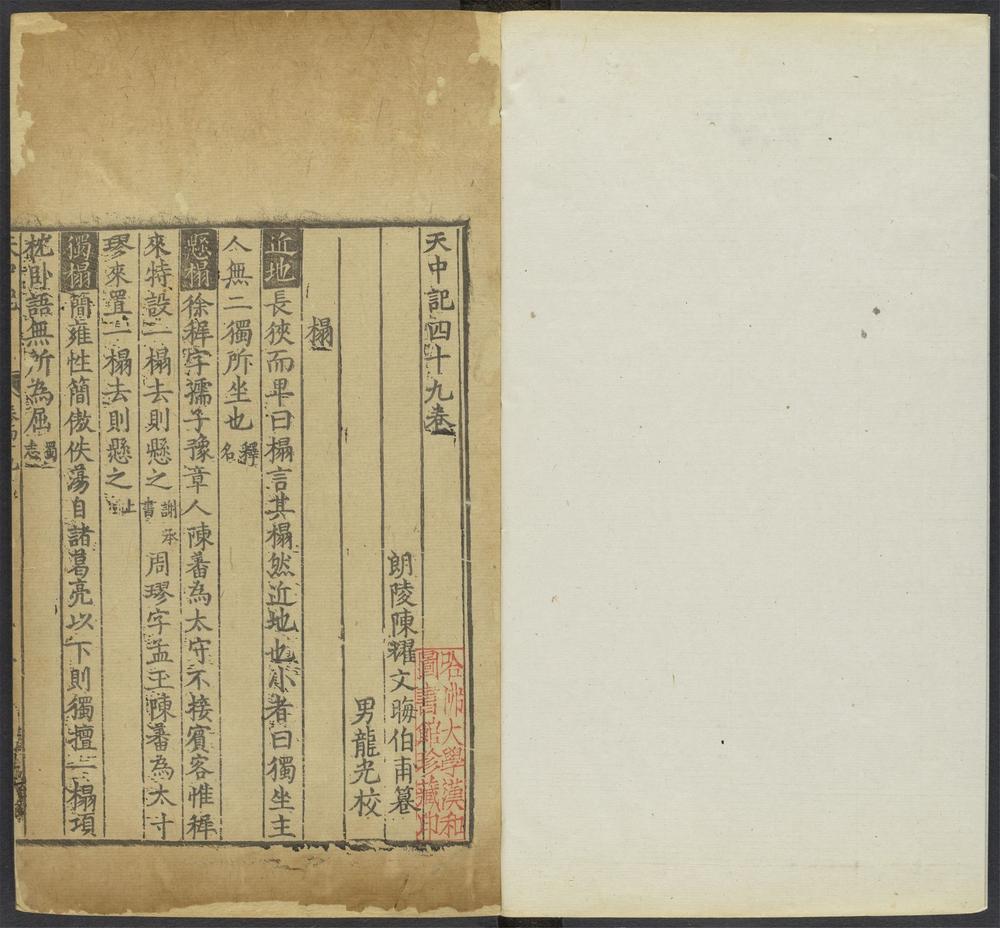 天中記四十九卷
朗陵陳耀文晦伯甫纂
男龍光校
榻
近地長狹而卑曰榻言其榻然近地也小者曰獨坐主
人無二獨所坐也釋名
懸榻徐稺字孺子豫章人陳蕃為太守不接賓客惟稺
來特設一榻去則懸之謝承書周璆字孟玉陳蕃為太守
璆來置一榻去則懸之上
獨榻簡雍性簡傲佚蕩自諸葛亮以下則獨擅一榻項
枕卧語無所為屈蜀志
哈佛大學漢和
圖書館珍藏印